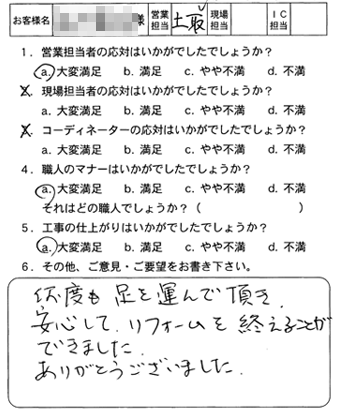 お客様名 様 営業担当 土取 現場担当 IC担当
1. 営業担当者の応対はいかがでしたでしょうか？
a. 大変満足 b. 満足 c. やや不満 d. 不満
2. 現場担当者の応対はいかがでしたでしょうか？
a. 大変満足 b. 満足 c. やや不満 d. 不満
3. コーディネーターの応対はいかがでしたでしょうか？
a. 大変満足 b. 満足 c. やや不満 d. 不満
4. 職人のマナーはいかがでしたでしょうか？
a. 大変満足 b. 満足 c. やや不満 d. 不満
それはどの職人でしょうか？（ ）
5. 工事の仕上がりはいかがでしたでしょうか？
a. 大変満足 b. 満足 c. やや不満 d. 不満
6. その他、ご意見・ご要望をお書き下さい。
何度も足を運んで頂き、
安心して、リフォームを終えることが
できました。
ありがとうございました。